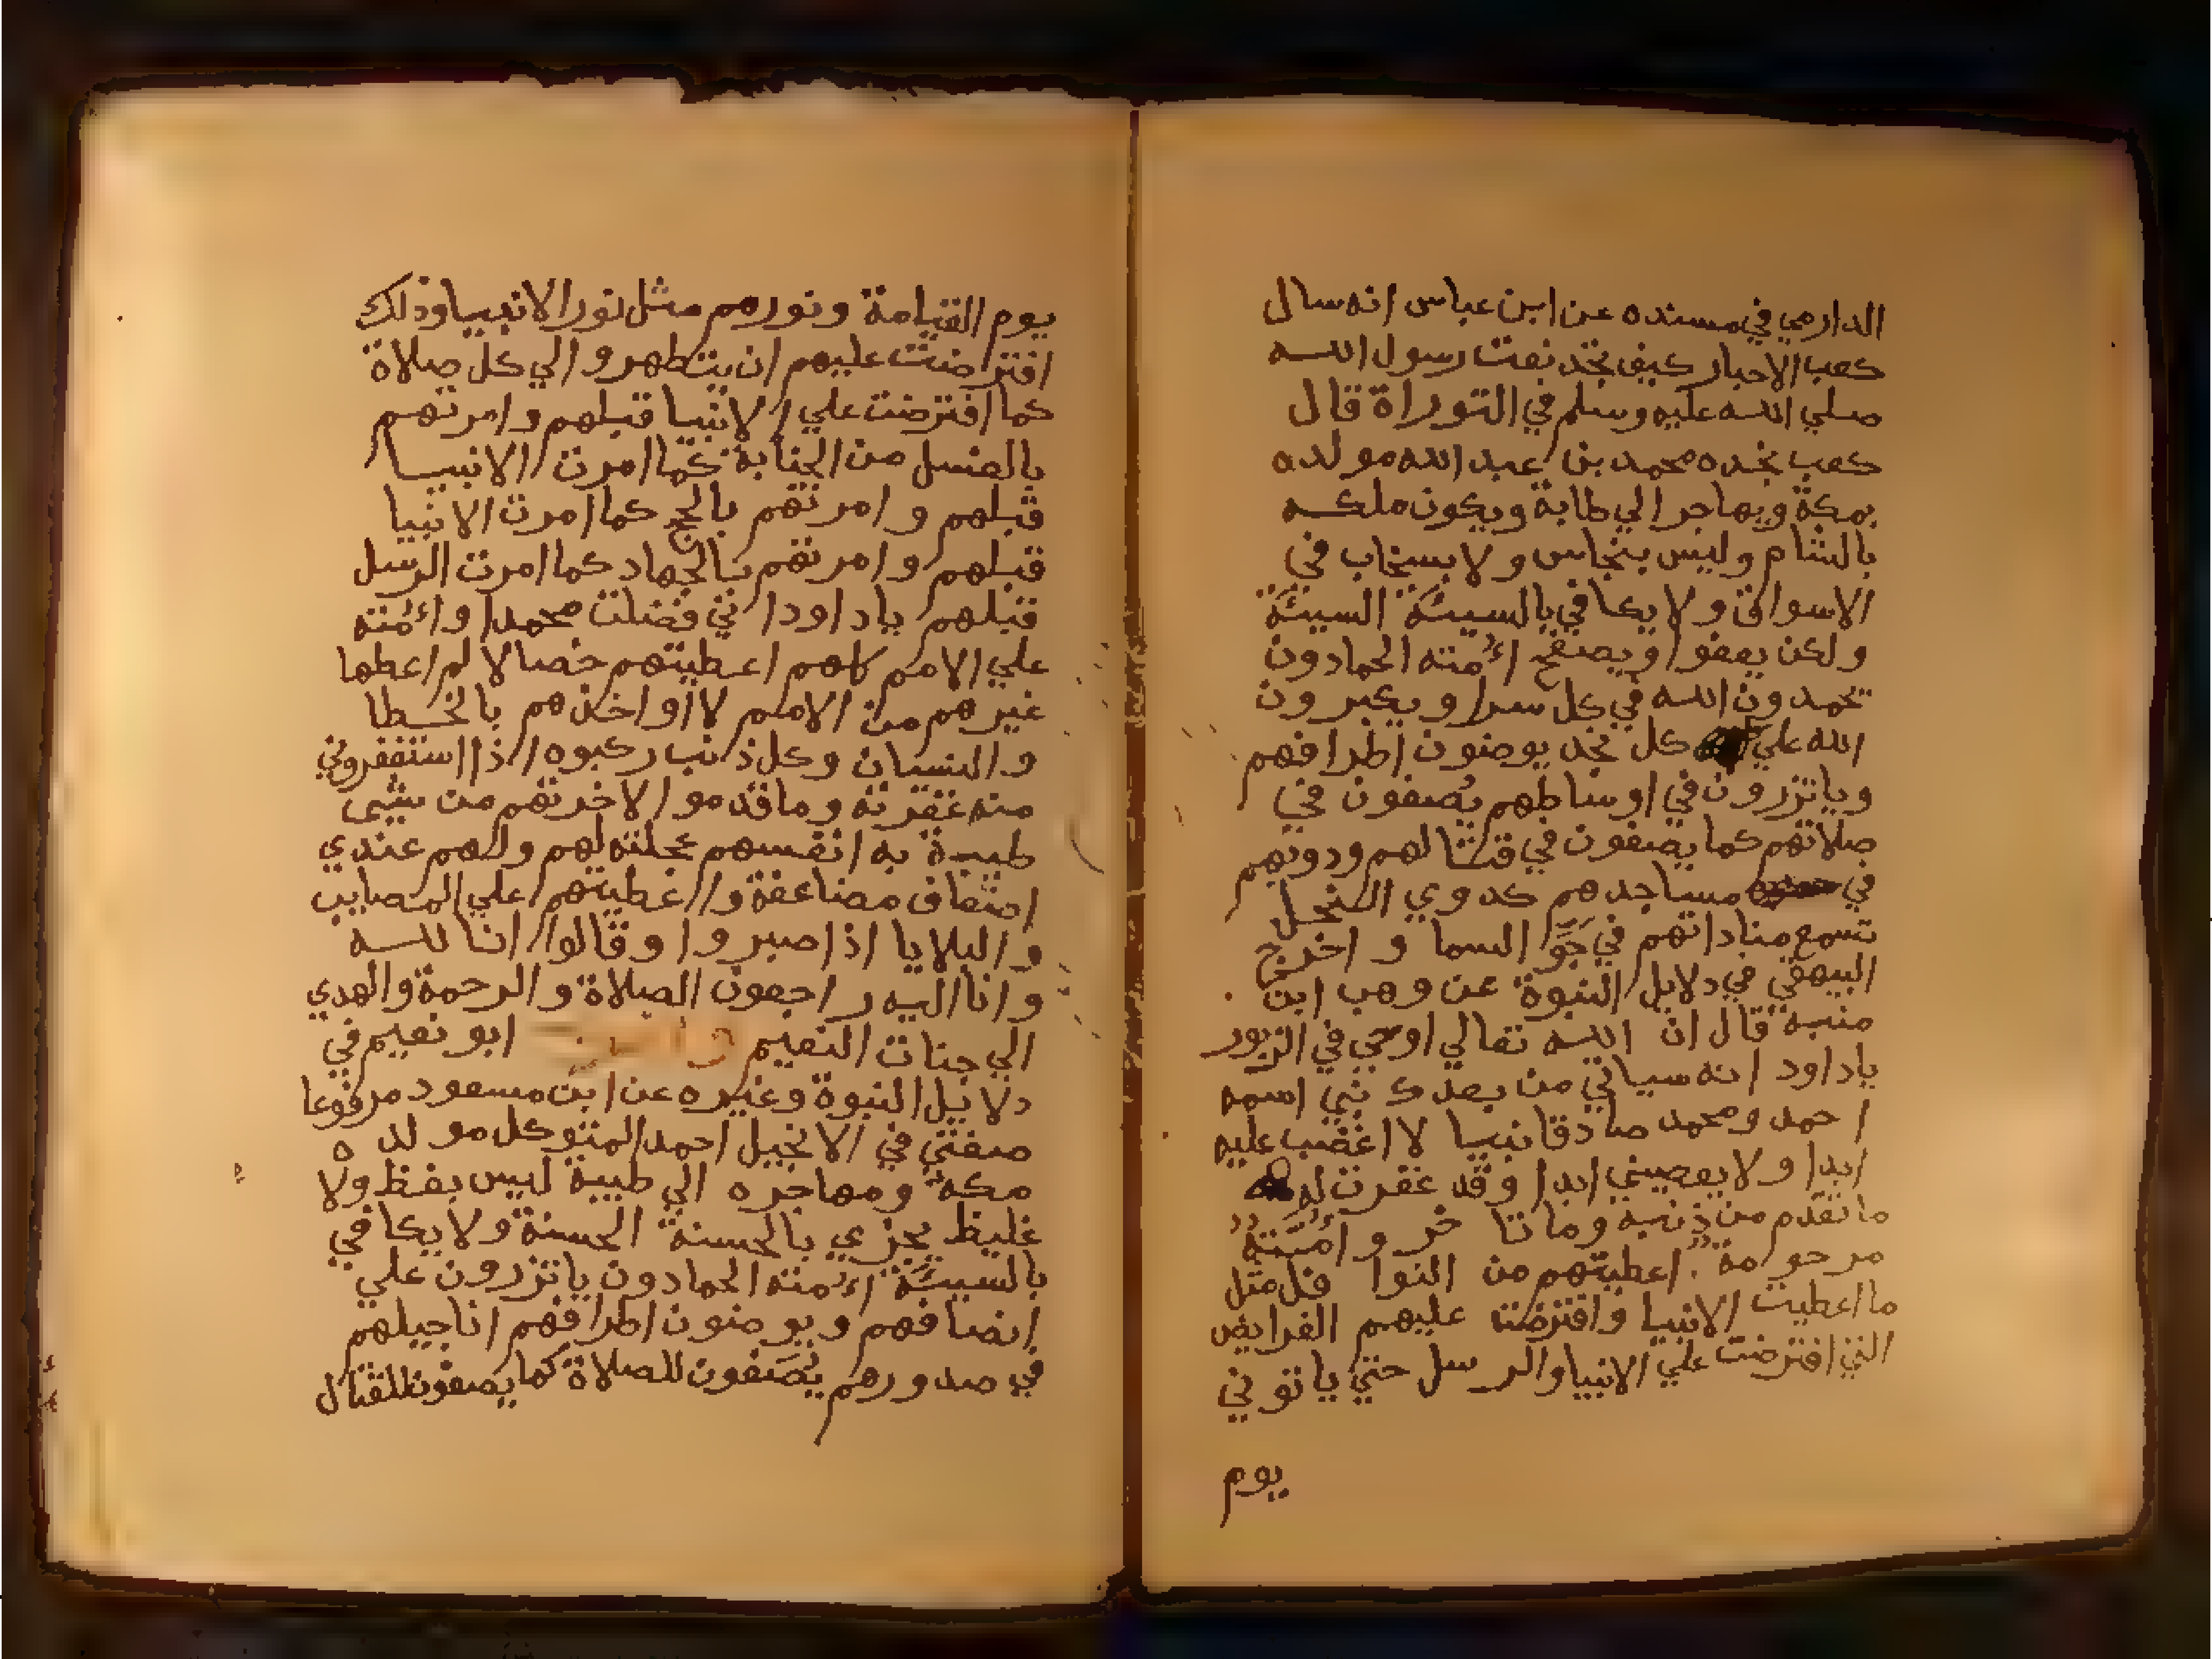 الدارمي في مسنده عن ابن عباس انه سال
كعب الاحبار كيف نجد نعت رسول اللـه
صلي اللـه عليه وسلم في التوراة قال
كعب نجده محمد بن عبد الله مولده
بمكة ويهاجر الي طابة ويكون ملكـه
بالشام وليس بنجاس ولا بسخاب في
الاسواق ولا يكافي بالسيئة السيئة
ولكن يعفوا ويصفح اُمته الحمادون
تحمدون اللـه في كل سرا ويكبرون
الله علي كل نجد يوضون اطرافهم
وياتزرون في اوساطهم يُصفون في
صلاتهم كما يصفون في قتالهم ودويهم
في مساجدهم كدوي النحل
تسمع مناداتهم في جَوِّ السما و اخرج
البيهقي في دلايل النبوة عن وهب ابن
منبه قال ان اللـه تعالي اوحي في الزبور
ياداود انه سياتي من بعدك نبي اسمه
احمد ومحمد صادقا نبيا لا اغضب عليه
ابدا ولا يعصيني ابدا وقد غفرت له
ما تقدم من ذنبه وما تاخر و اُمَّتهُ
مرحومة اعطيتهم من النوافل مثل
ما اعطيت الانبيا وافترضت عليهم الفرايض
التي افترضت علي الانبيا والرسل حتي ياتوني
يوم
يوم القيامة ونورهم مثل نور الانبيا وذلك
افترضت عليهم ان يتطهروا لي كل صلاة
كما افترضت علي الانبيا قبلهم وامرتهم
بالغسل من الجنابة كما امرت الانبيـا
قبلهم و امرتهم بالحج كما امرت الانبيا
قبلهم و امرتهم بالجهاد كما امرت الرسل
قبلهم ياداود اني فضلت محمدا واُمته
علي الامم كلهم اعطيتهم خصالا لم اعطها
غيرهم من الامم لا اواخذهم بالخـطا
و النسيان وكل ذنب ركبوه اذا استغفروني
منه غفرته وما قدموا لاخرتهم من شيى
طيبة به انفسهم عجلته لهم ولهم عندي
اضعاف مضاعفة و اعطيتهم علي المصايب
و البلايا اذا صبروا وقالوا انا للـه
وانا اليه راجعون الصلاة والرحمة والهدي
الي جنات النعيم ابو نعيم في
دلايل النبوة وغيره عن ابن مسعود مرفوعا
صفتي في الانجيل احمد المتوكل مولده
مكة ومهاجره الي طيبة ليس بفظ ولا
غليظ يجزي بالحسنة الحسنة ولا يكافي
بالسيئة اُمته الحمادون ياتزرون علي
انصافهم ويوضون اطرافهم اناجيلهم
في صدورهم يُصَفون للصلاة كما يصفون للقتال